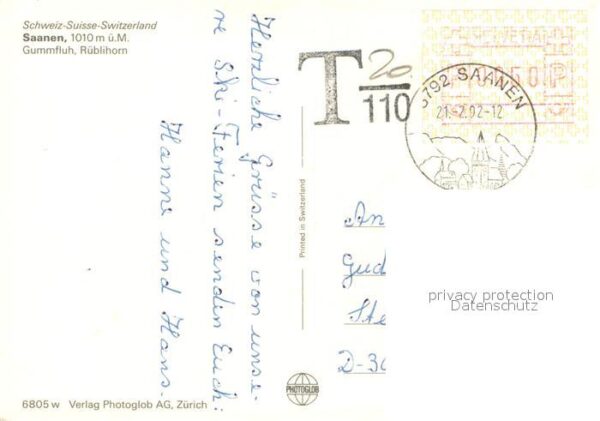 Schweiz-Suisse-Switzerland
Saanen, 1010 m ü.M.
Gummfluh, Rüblihorn
Herzliche Grüsse von unse-
re Ski-Ferien senden Euch:
Hanne und Hans.
T 20
110
3792 SAANEN
21.-2.92-12
Printed in Switzerland
An
Gud
Ste
D-30
privacy protection
Datenschutz
PHOTOGLOB
6805 w Verlag Photoglob AG, Zürich